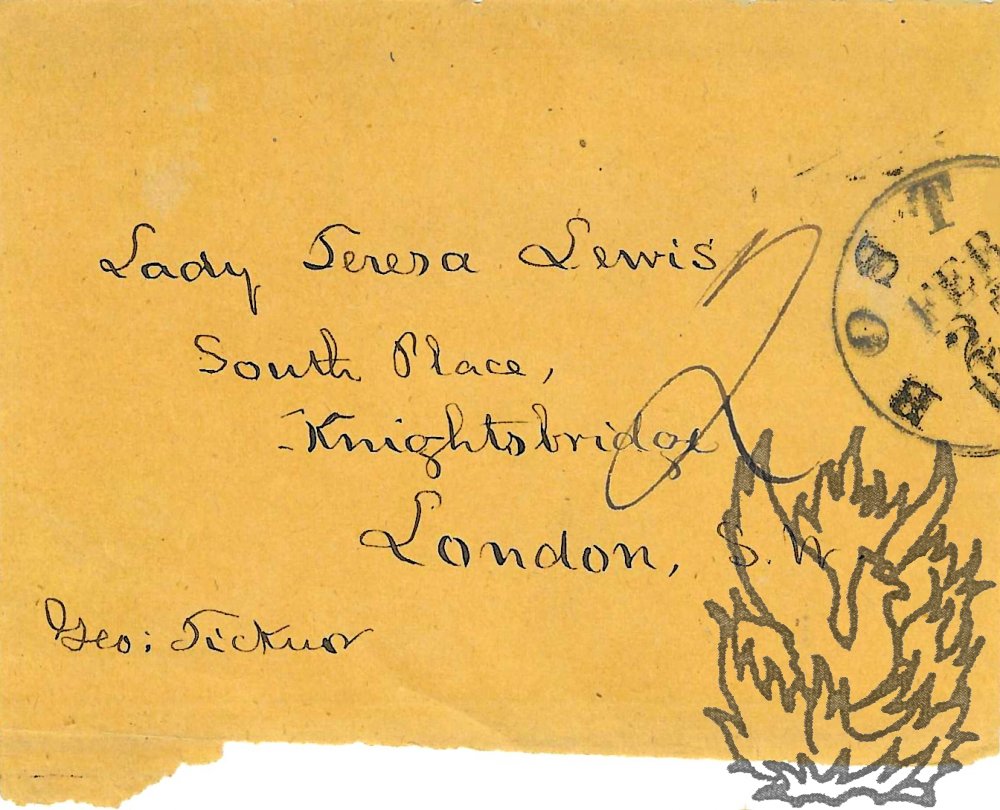 Lady Teresa Lewis
South Place,
Knightsbridge
London, S.W.
Geo: Ticknor
2
BOST
FEB